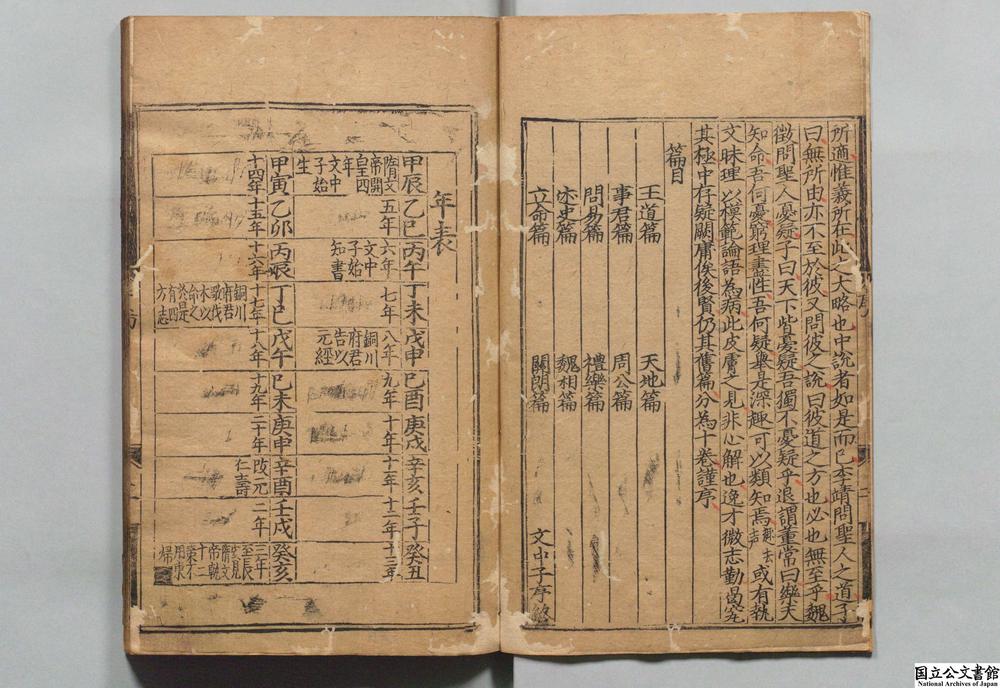 所適惟義所在此之大略也中說者如是而已李靖問聖人之道子
曰無所由亦不至於彼又問彼之說曰彼道之方也必也無至乎魏
徵問聖人憂疑子曰天下皆憂疑吾獨不憂疑乎退謂董常曰樂天
知命吾何憂窮理盡性吾何疑舉是深趣可以類知焉或有執
文昧理以模範論語為病此皮膚之見非心解也逸才微志勤曷究
其極中存疑闕庸俟後賢仍其舊篇分為十卷謹序
篇目
王道篇 天地篇
事君篇 周公篇
問易篇 禮樂篇
述史篇 魏相篇
立命篇 關朗篇
文中子序終
年表
甲辰 乙巳 丙午 丁未 戊申 己酉 庚戌 辛亥 壬子 癸丑
隋文
帝開
皇四
年
文中
子始
生
五年
六年
文中
子始
知書
七年
八年
銅川
府君
告以
元經
九年
十年
十一年
十二年
十三年
甲寅 乙卯 丙辰 丁巳 戊午 己未 庚申 辛酉 壬戌 癸亥
十四年
十五年
十六年
十七年
銅川
府君
歌伐
木以
命之
於是
有四
方志
十八年
十九年
二十年
改元
仁壽
二年
三年
至長
安見
隋文
帝䡖
十二
策不
用東
歸
国立公文書館
National Archives of Japan